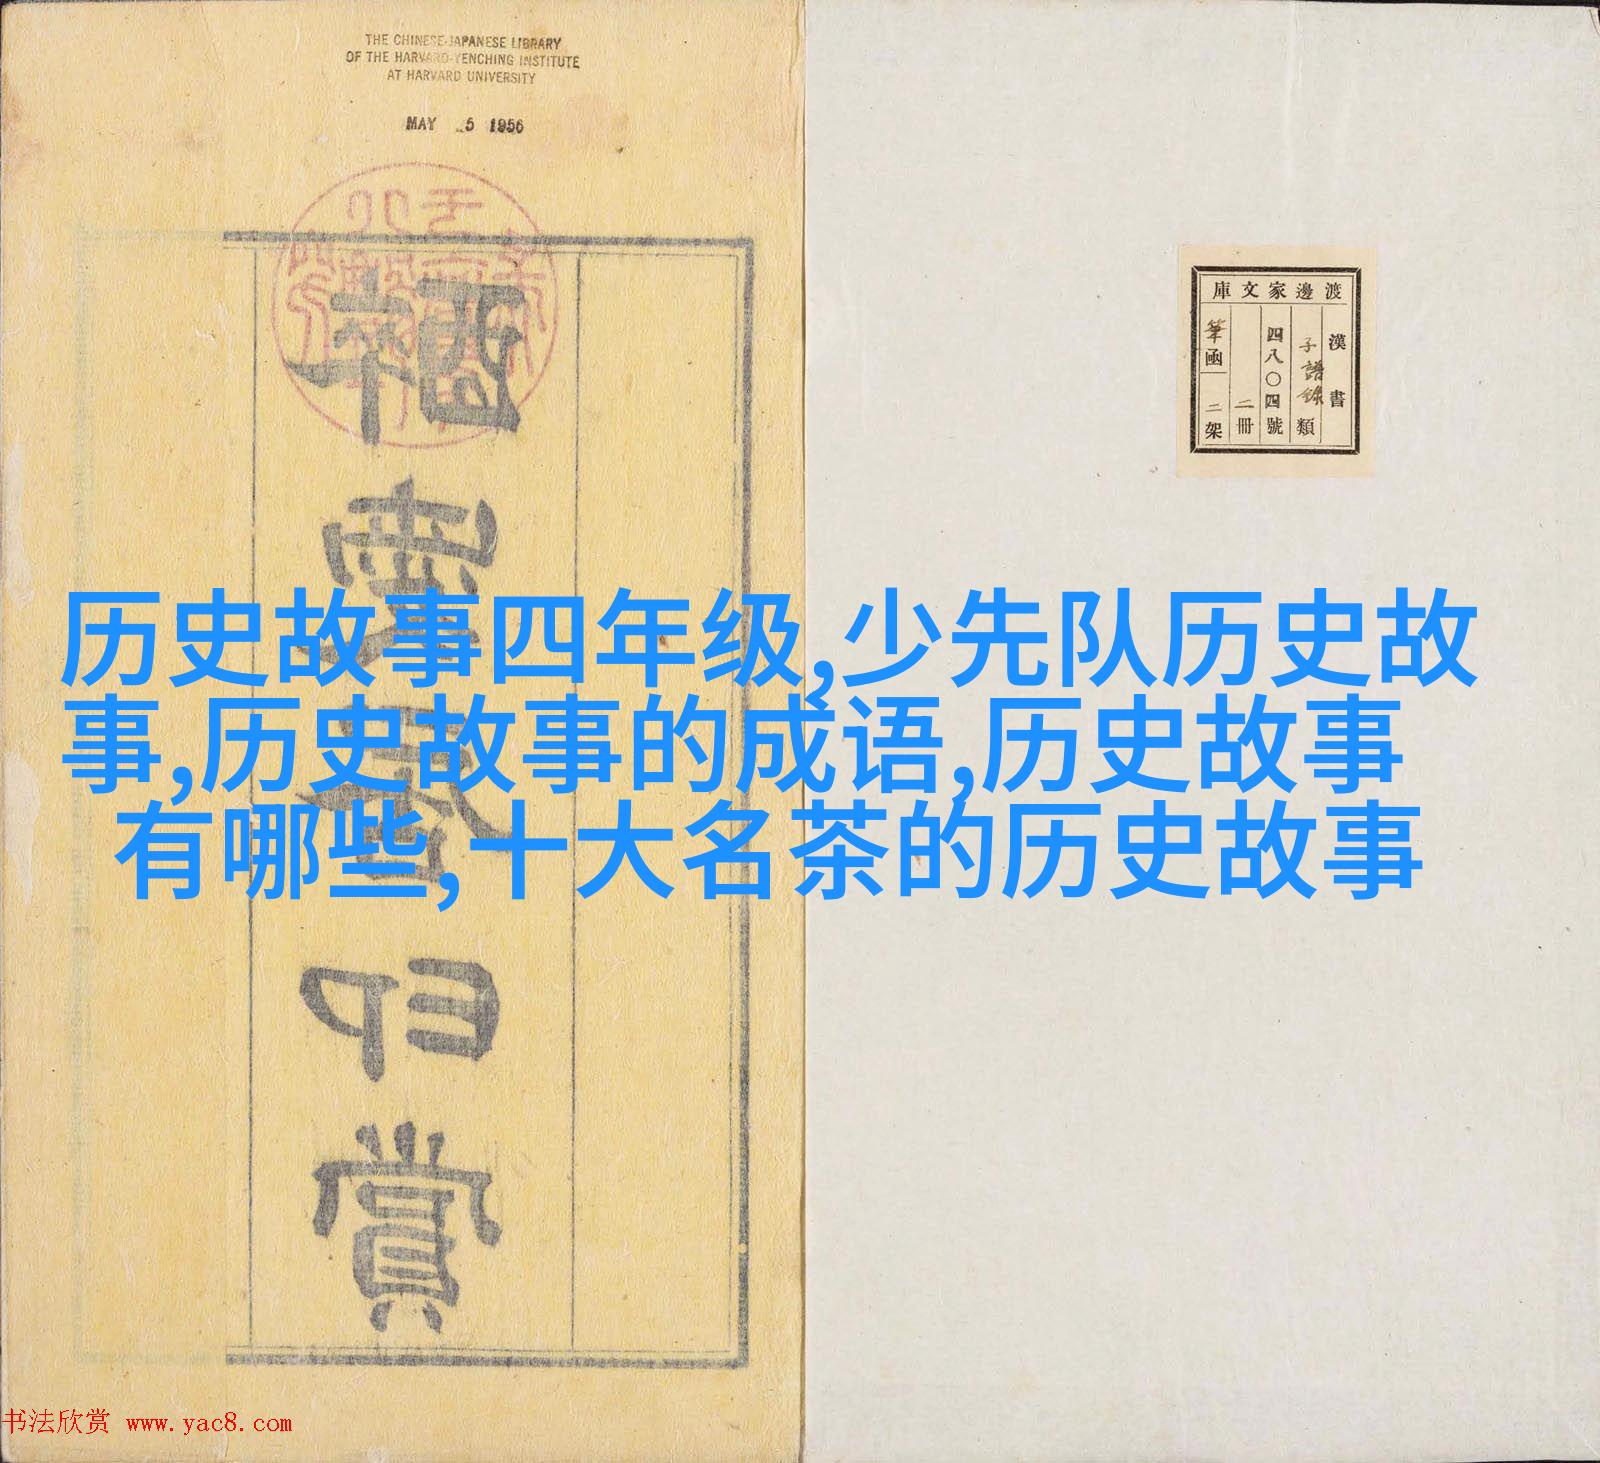 THE CHINESE-JAPANESE LIBRARY
OF THE HARVARD-YENCHING INSTITUTE
AT HARVARD UNIVERSITY
MAY 5 1956
印
賞
渡邊家文庫
漢書
子譜錄類
四八〇四號
二冊
筆函
二架
历史故事四年级,少先队历史故
事,历史故事的成语,历史故事
有哪些,十大名茶的历史故事
书法欣赏 www.yac8.com